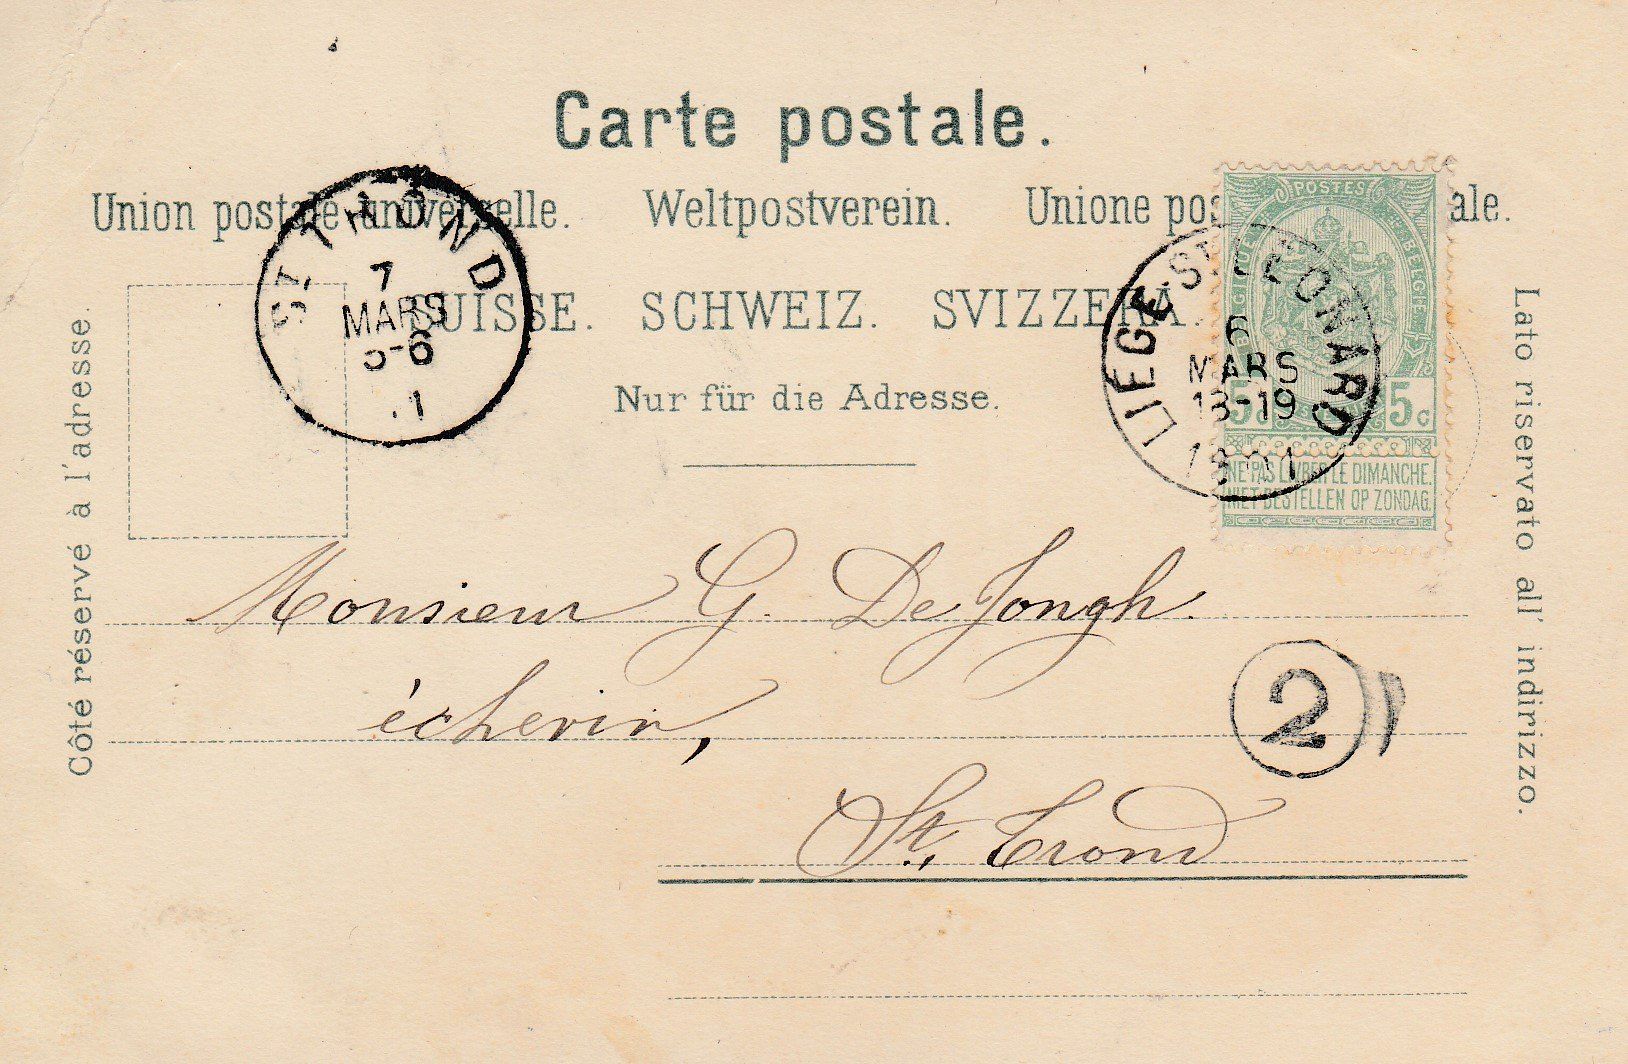 Carte postale.
Union postale universelle. Weltpostverein. Unione pos ale.
SUISSE. SCHWEIZ. SVIZZERA.
Nur für die Adresse.
Côté réservé à l'adresse.
Lato riservato all' indirizzo.
ST TROND
7
MARS
5-6
POSTES
BELGIQUE BELGIË
5 5c
NE PAS LIVRER LE DIMANCHE.
NIET BESTELLEN OP ZONDAG.
LIÈGE-ST LÉONARD
6
MARS
18-19
1901
Monsieur G. De Jongh.
échevin,
2
St. Trond